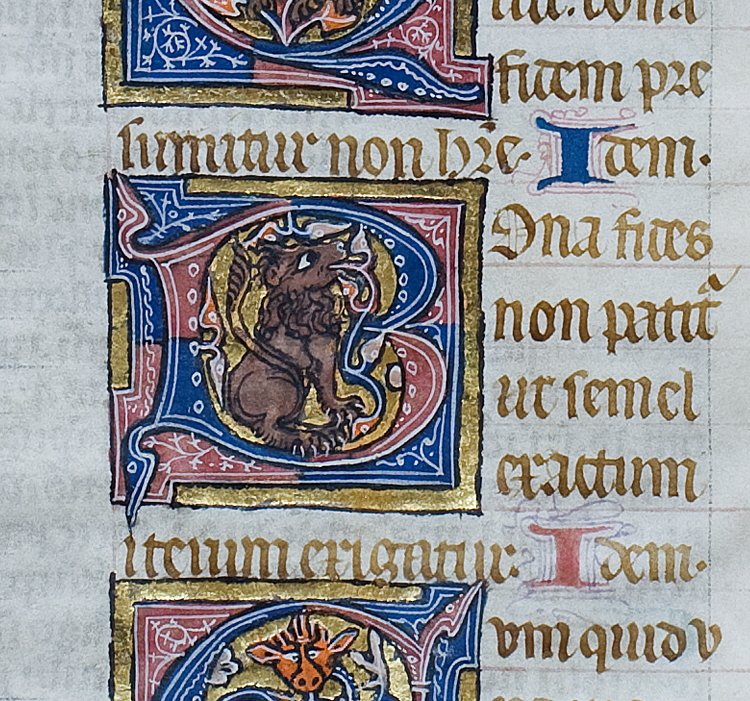 fidem pre
sumitur non hr̄e. Idem.
BOna fides
non patit᷑
ut semel
exactum
iterum exigatur: Idem.
vm quid v